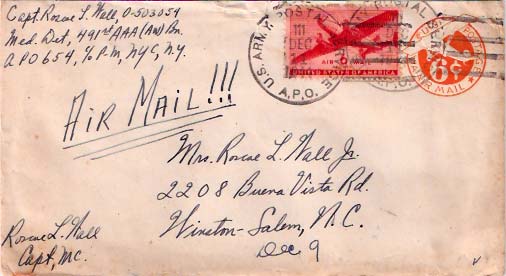 Capt. Roscoe L. Wall, O-503054
Med. Det, 491st AAA (AW) Bn.
APO 654, c/o P.M., NYC, N.Y.
U.S. ARMY POSTAL SERVICE
A.P.O.
111
DEC
AIR MAIL
UNITED STATES OF AMERICA
POSTAL
A.P.O.
U.S. POSTAGE
6¢
AIR MAIL
AIR MAIL!!!
Mrs. Roscoe L. Wall Jr.
2208 Buena Vista Rd.
Winston-Salem, N.C.
Dec 9
Roscoe L. Wall
Capt, MC.